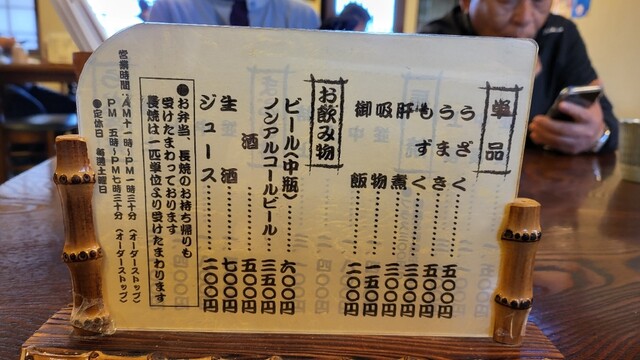 単品
うざく…………五〇〇円
うまき…………五〇〇円
もずく…………三〇〇円
肝煮…………三〇〇円
吸物…………一五〇円
御飯…………二〇〇円
お飲み物
ビール(中瓶)…………六〇〇円
ノンアルコールビール…………三五〇円
酒…………五〇〇円
生酒…………七〇〇円
ジュース…………二〇〇円
●お弁当、長焼のお持ち帰りも
受けたまわっております
長焼は一匹単位より受けたまわります
営業時間:AM十一時~PM一時三十分(オーダーストップ)
PM五時~PM七時三十分(オーダーストップ)
●定休日 毎週土曜日